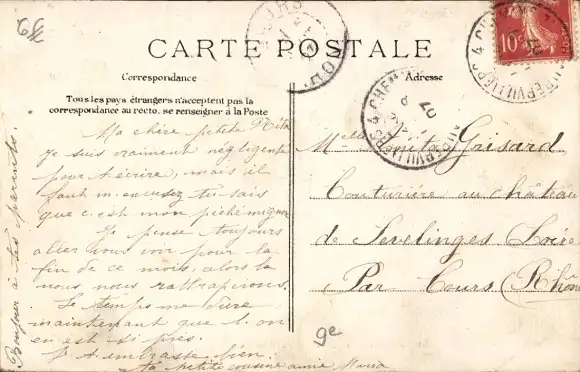 CARTE POSTALE
Correspondance
Tous les pays étrangers n'acceptent pas la
correspondance au recto. se renseigner à la Poste
Ma chère petite Nita
Je suis vraiment négligente
pour t'écrire, mais il
faut m'excusez tu sais
que c'est mon péché mignon
Je pense toujours
aller vous voir pour la
fin de ce mois, alors là
nous nous rattraperons.
Le temps me dure
maintenant que l'on
en est si près.
Je t'embrasse bien.
Ta petite cousine amie Maria
Bonjour à tes parents.
Adresse
Melle Anita Grisard
Couturière au château
de Sevelinges (Loire
Par Cours (Rhône
9e
10c
AUBERVILLIERS 4 CHEMINS
07
AUBERVILLIERS 4 CHEM
COURS